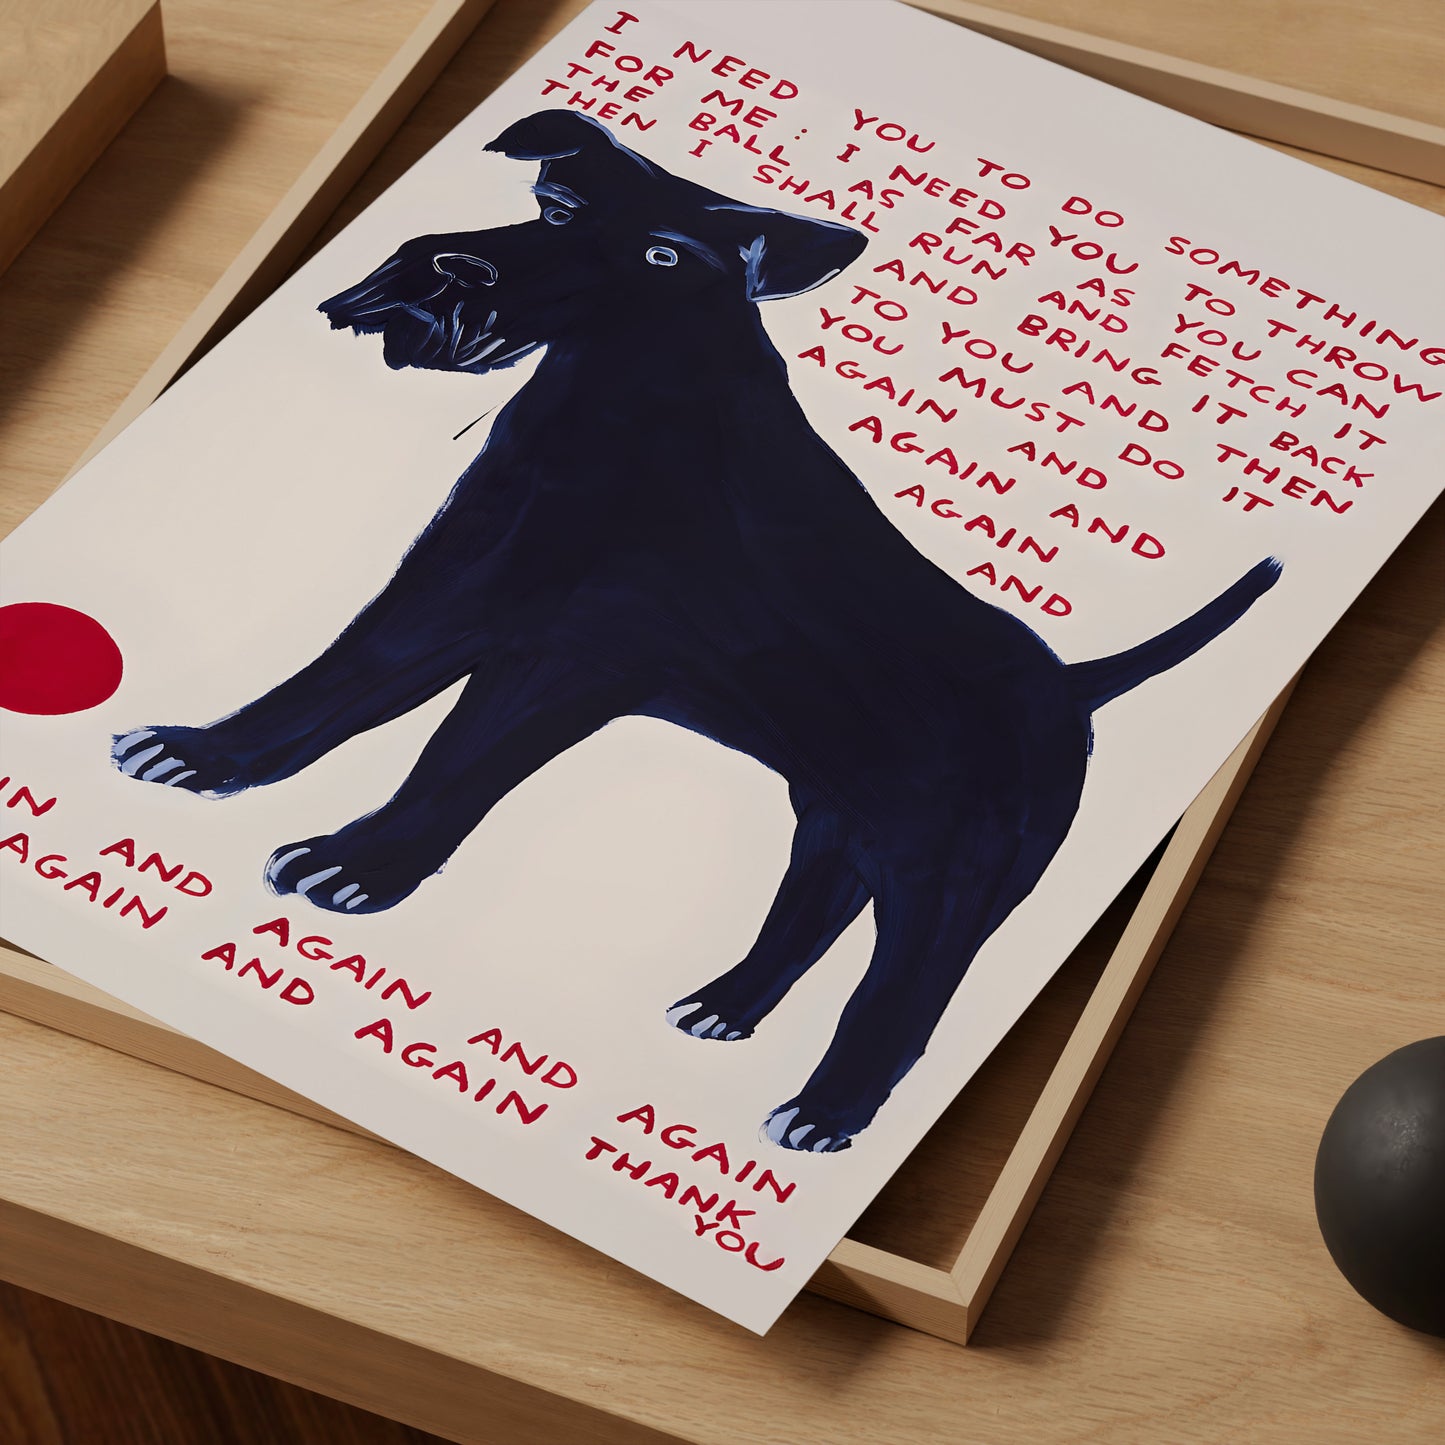 I NEED YOU TO DO SOMETHING
FOR ME: I NEED YOU TO THROW
THE BALL AS FAR AS YOU CAN
THEN I SHALL RUN AND FETCH IT
AND BRING IT BACK
TO YOU AND THEN
YOU MUST DO IT
AGAIN AND
AGAIN AND
AGAIN
AND
IN AND AGAIN AND AGAIN
AGAIN AND AGAIN THANK
YOU